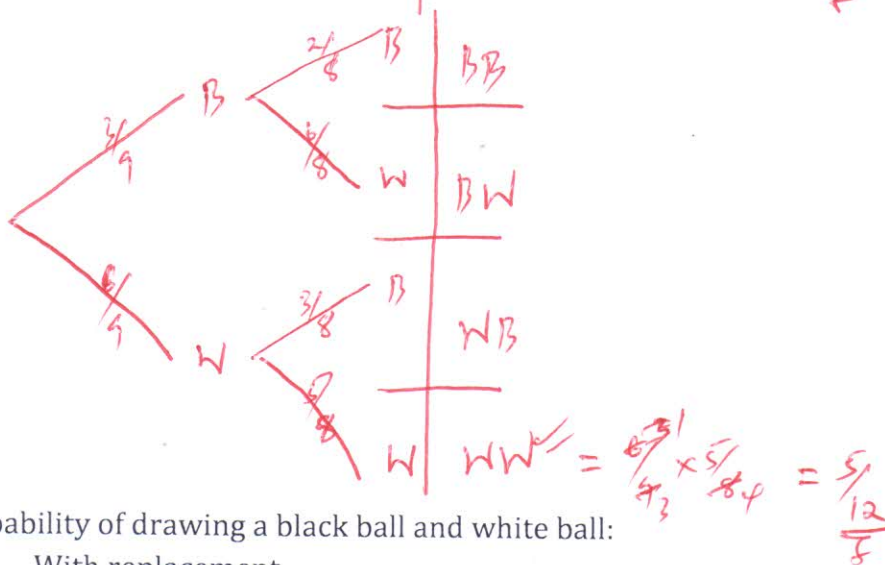 2/8 B BB
B
3/9 6/8 W BW
3/8 B
6/9 WB
W
5/8
W WW = 6/9 3 × 5/8 4 = 5/12
bability of drawing a black ball and white ball:
With replacement